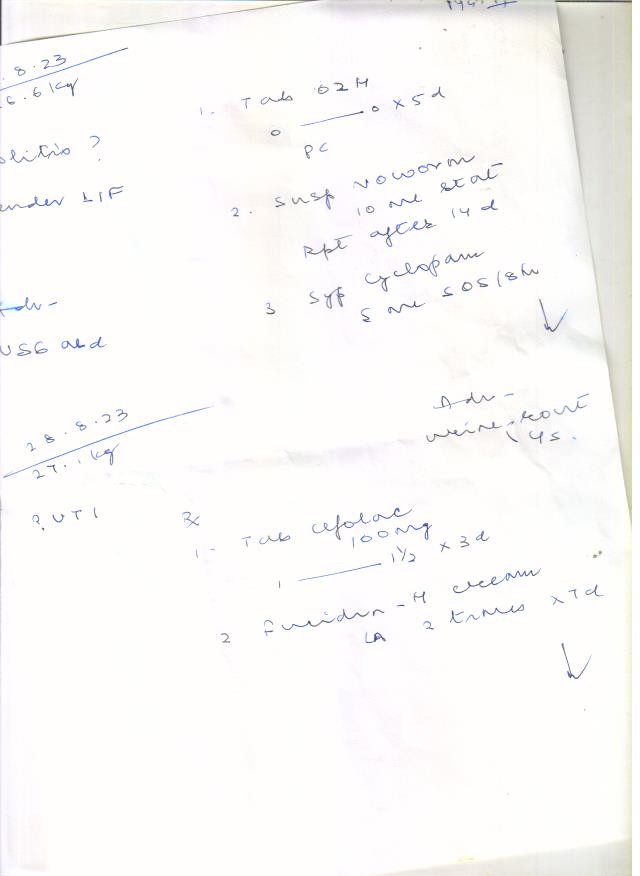 .8.23
6.6 kg
1. Tab O2H
0 — 0 x 5d
PC
olitis ?
ender LIF
2. Susp Noworm
10 ml stat
Rpt after 14 d
3 Syp Cyclopam
5 ml SOS/8h
Adv-
USG abd
Adv-
urine - rout
c/s.
28.8.23
27.1 kg
? UTI
Rx
1- Tab Cefolac
100mg
1 — 1½ x 3d
2 Fucidin-H cream
LA 2 times x 7d